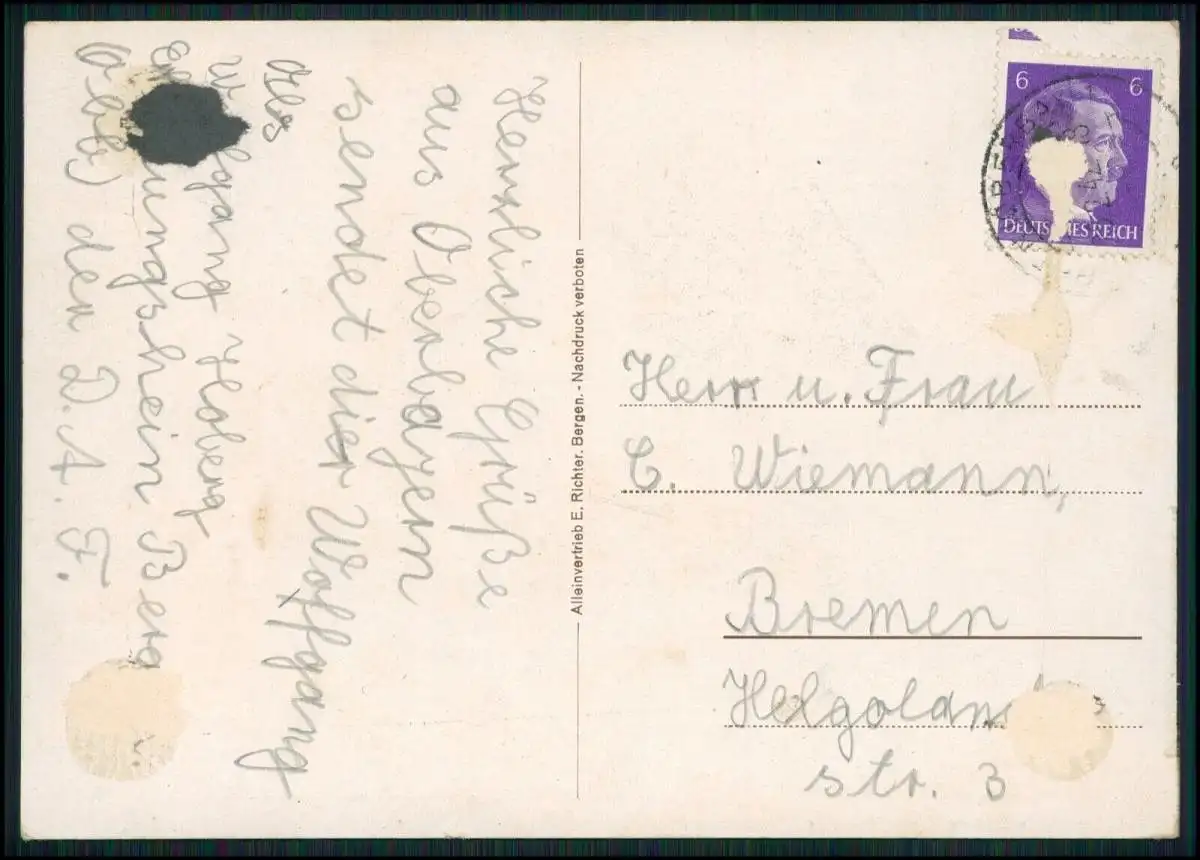 Herzliche Grüße
aus Oberbayern
sendet dier Woffgang
Abs
gang Hoberg
ungsheim Berg
den D.A.F.
Alleinvertrieb E. Richter. Bergen. - Nachdruck verboten
6 6
DEUTS ES REICH
Herr u. Frau
C. Wiemann,
Bremen
Helgolan
str. 3